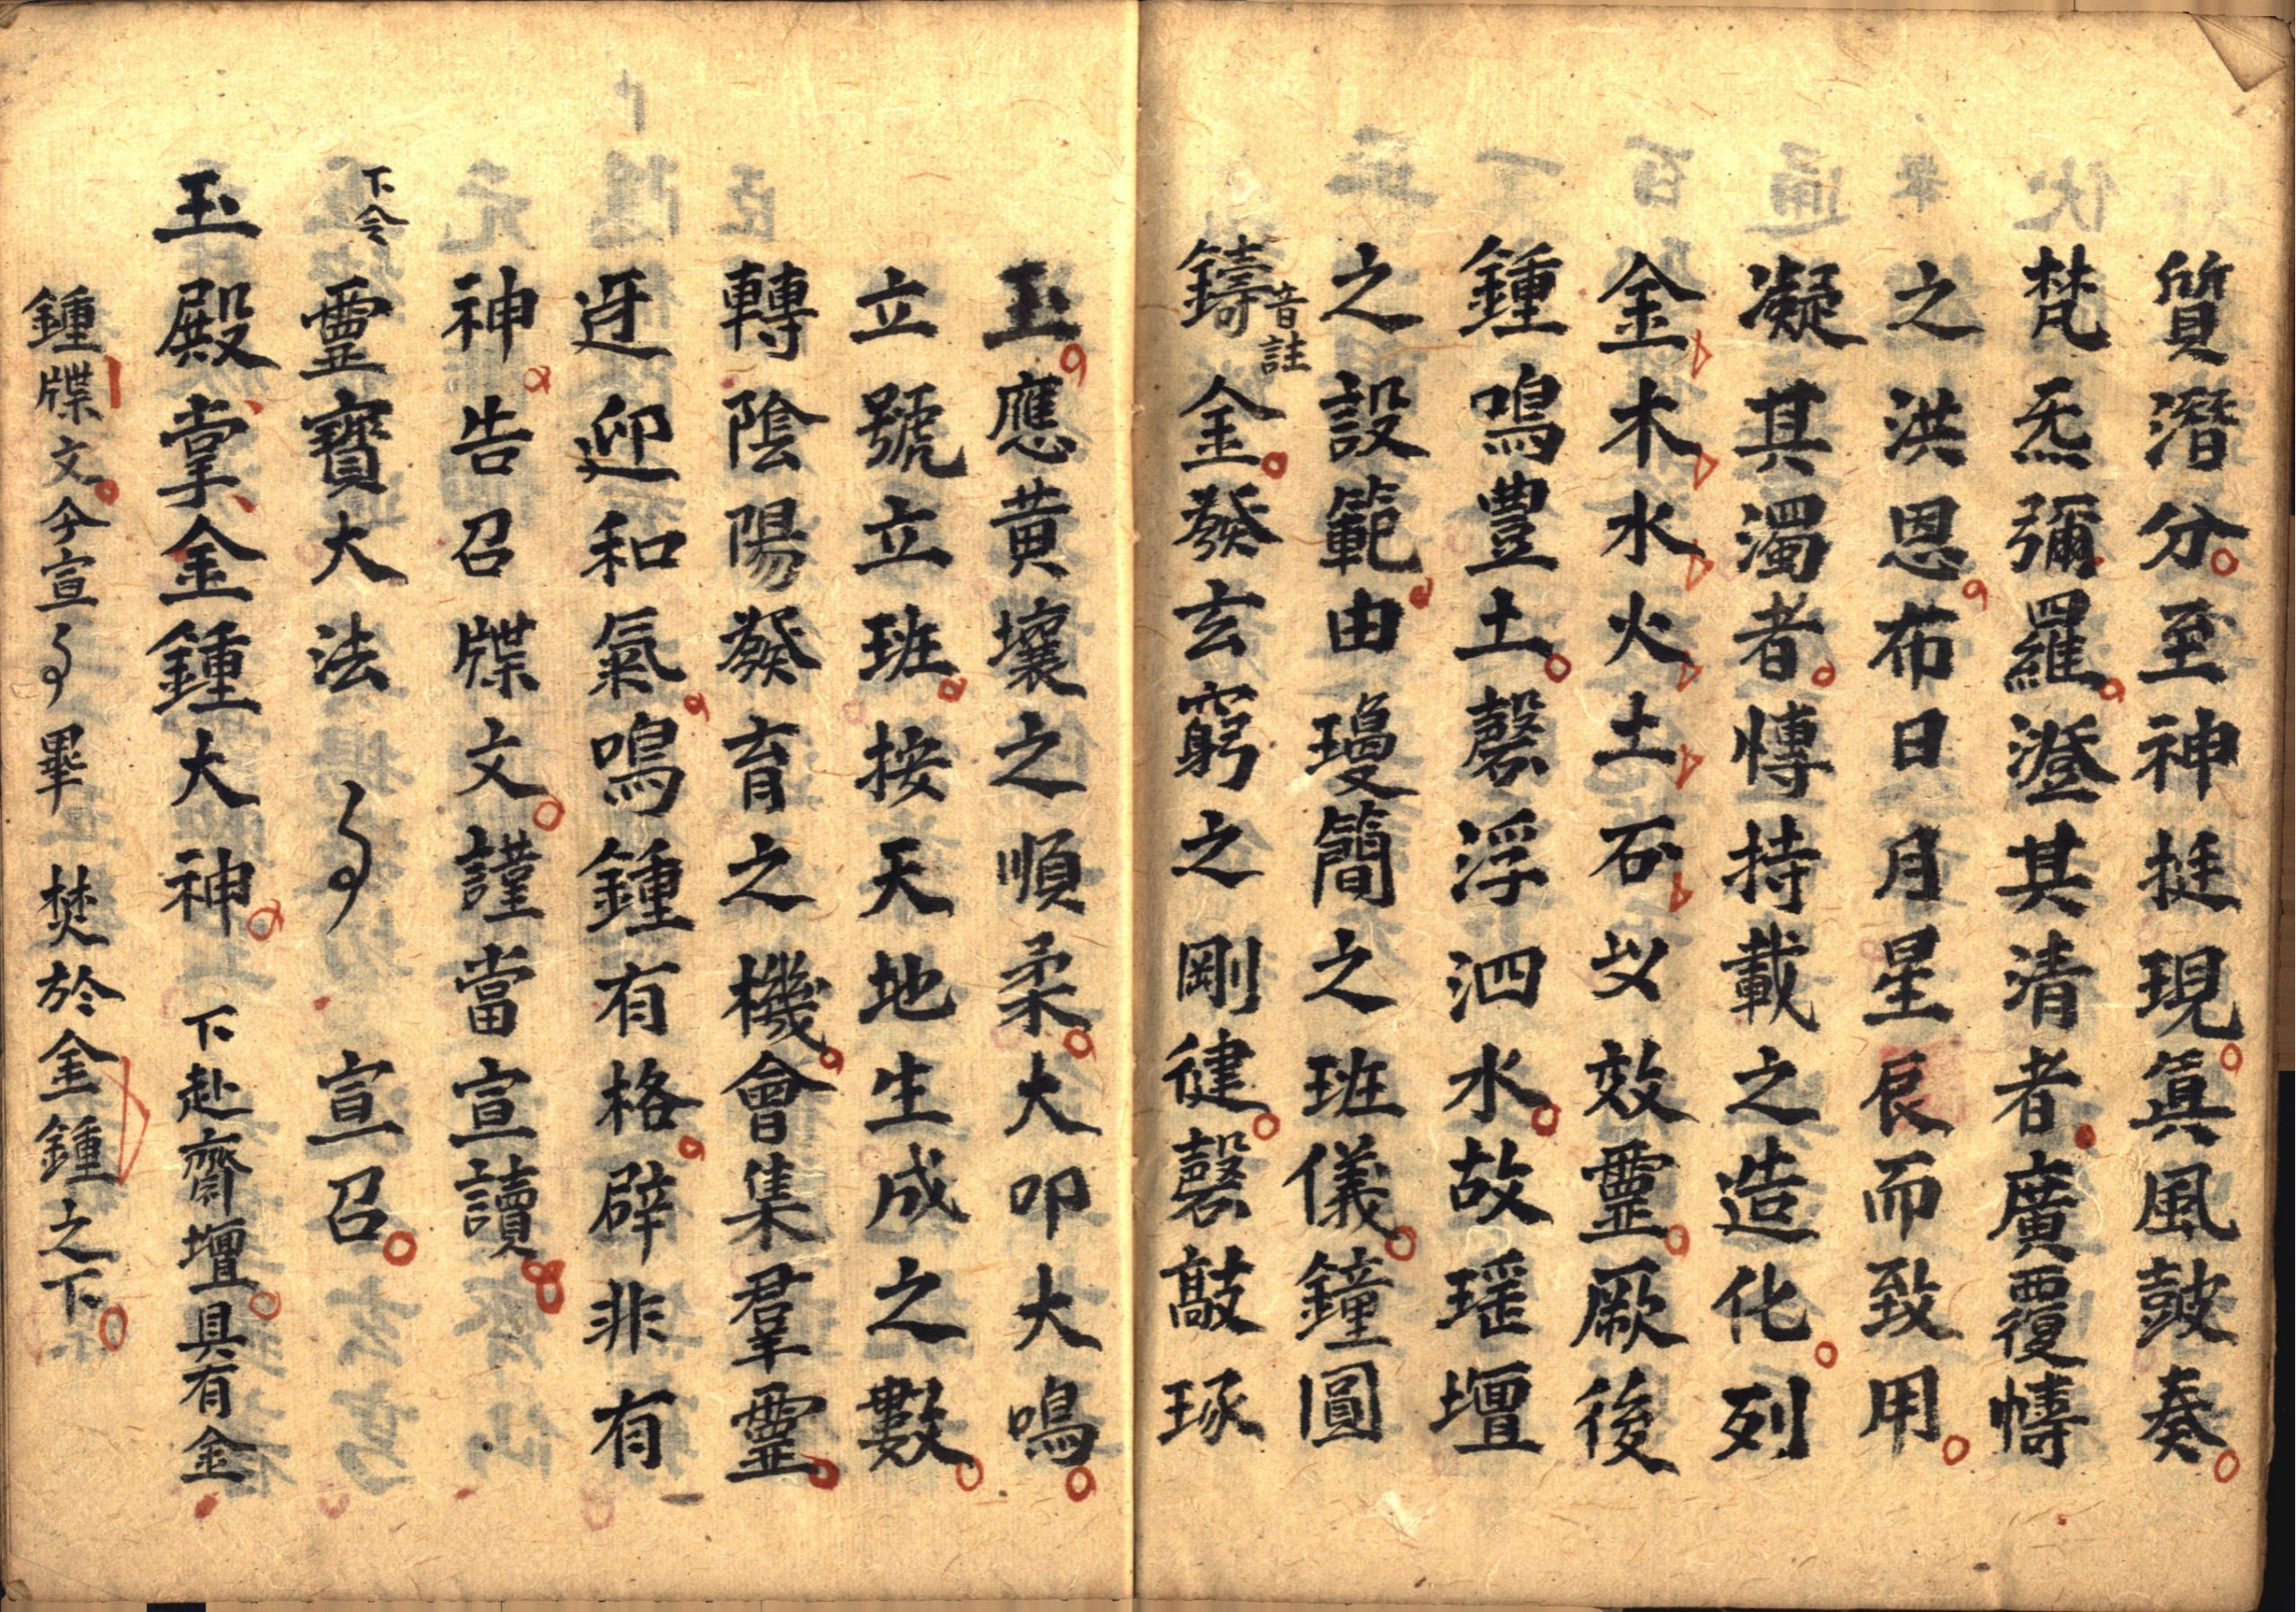 質潛分至神挺現眞風鼓奏
梵炁彌羅澄其清者廣覆幬
之洪恩布日月星辰而致用
凝其濁者愽持載之造化列
金木水火土石以效靈厥後
鍾鳴豊土磬浮泗水故瑶壇
之設範由瓊簡之班儀鐘圓
音註
鑄金發玄窮之剛健磬敲琢
玉應黄壤之順柔大叩大鳴
立號立班按天地生成之數
轉陰陽發育之機會集羣靈
迓迎和氣鳴鍾有格辟非有
神告召牒文謹當宣讀
下令
靈寶大法 宣召
玉殿掌金鍾大神 下赴齋壇具有金
鍾牒文今宣 畢 焚於金鍾之下